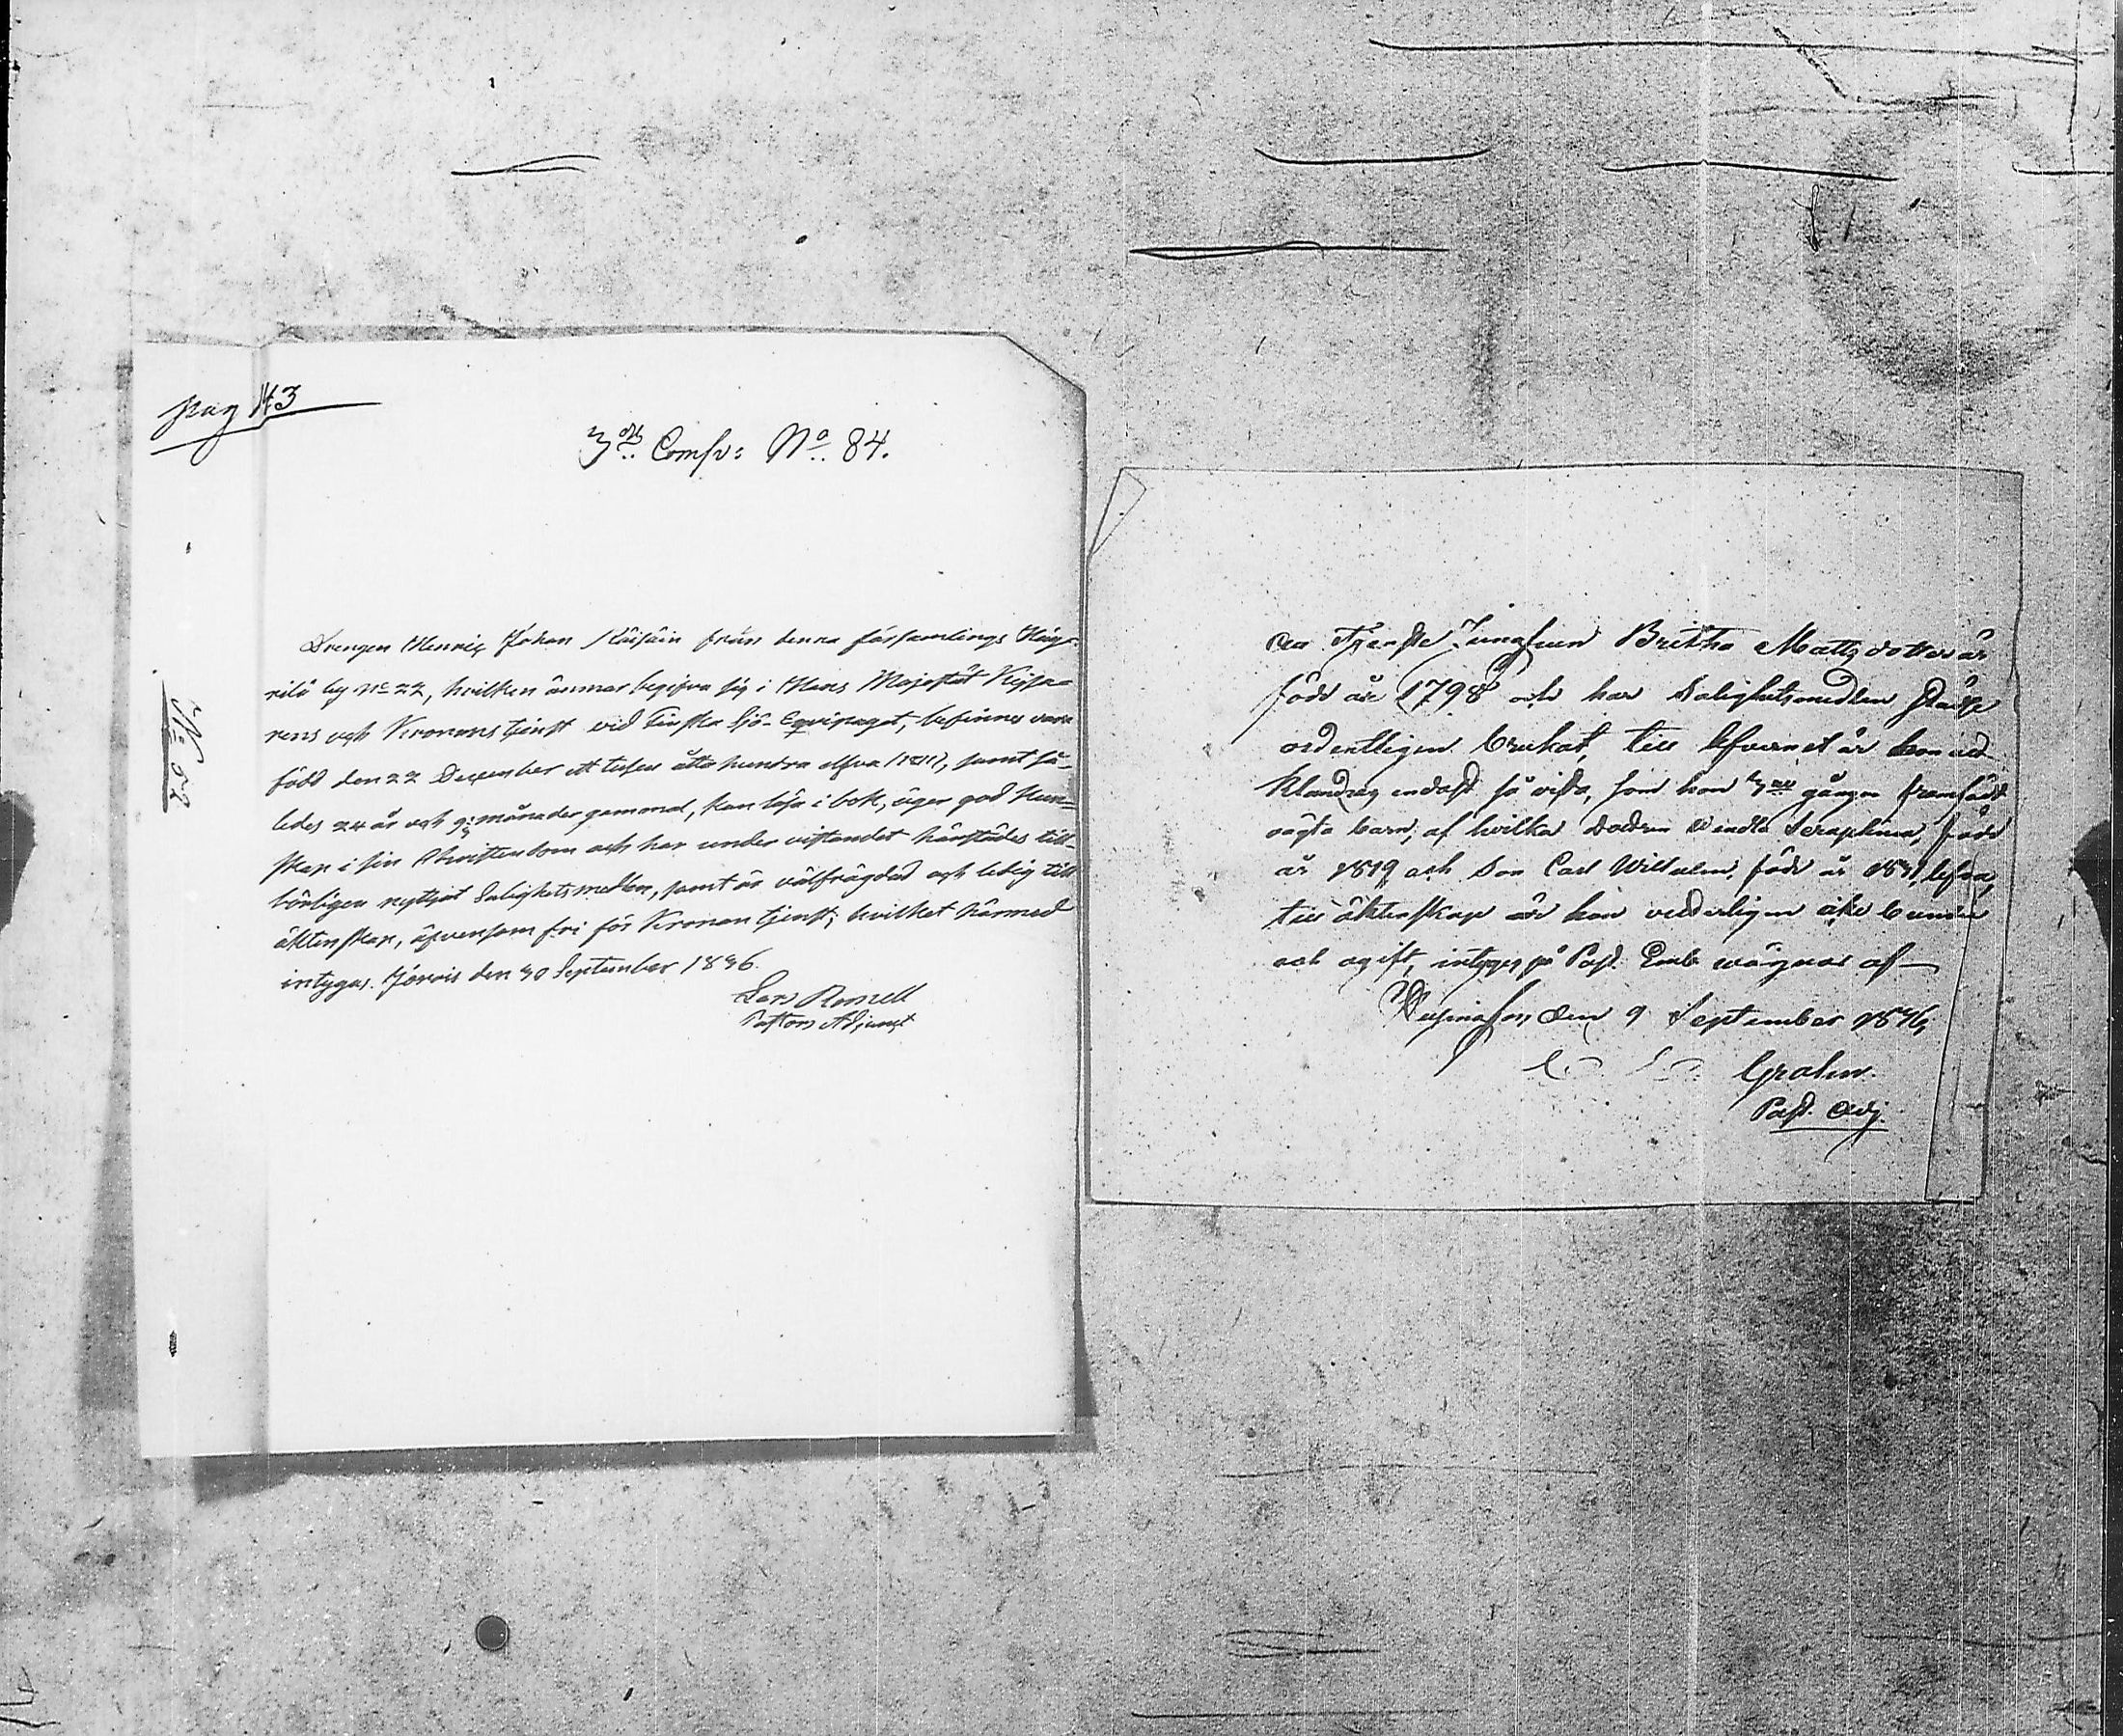 pag 143
3dje Comp: No. 84.
No 52
Drengen Henric Johan Räisäin från denna församlings Haap-
rilä by No 22, hvilken ämnar begifva sig i Hans Majestät Kejsa-
rens och Kronans tjenst vid Finska Sjö-Equipaget, befinnes vara
född den 22 December ett tusen åtta hundra elfva (1811), samt så-
ledes 24 år och 9 månader gammal, kan läsa i bok, äger god Kun-
skap i sin Christendom och har under vistandet härstädes till-
börligen nyttjat Salighetsmedlen, samt är välfrägdad och ledig till
äktenskap, äfvensom fri för Kronan tjenst; hvilket härmed
intygas. Jorois den 30 September 1836.
Lars Romell
Pastors Adjunct
Tjenste Jungfrun Britha Mattsdotter är
född år 1798 och har Salighetsmedlen
ordentligen brukat, till lefvernet är hon
klandrag endast så vida, som hon gånger framfödt
oägta barn, af hvilka dottren Wendla Seraphina, född
år 1819 och Son Carl Wilhelm, född år lefva,
till äktenskap är hon veterligen icke bunden
och ogift, intygas på Past. Emb. wägnar af
den 9 September 1836,
Grahn.
Past. Adj.